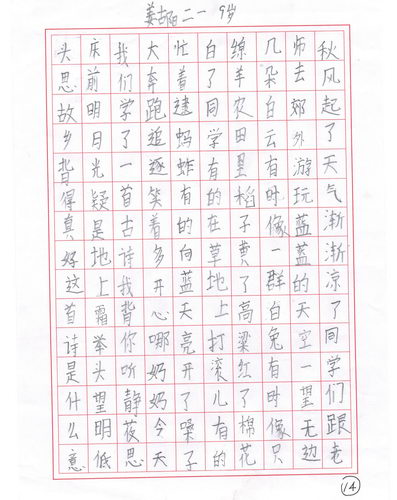 姜古阳 二一 9岁
秋风起了天气渐渐凉了同学们跟老
师去郊外游玩蓝蓝的天空一望无边
几朵白云有时像一群白兔有时像只
绵羊农田里稻子黄了高梁红了棉花
白了同学有的在草地上打滚儿有的
忙着逮蚂蚱有的向蓝天亮开了嗓子
大奔跑追逐笑着多开心哪奶奶今天
我们学了一首古诗我背你听静夜思
床前明月光疑是地上霜举头望明低
头思故乡背得真好这首诗是什么意
14